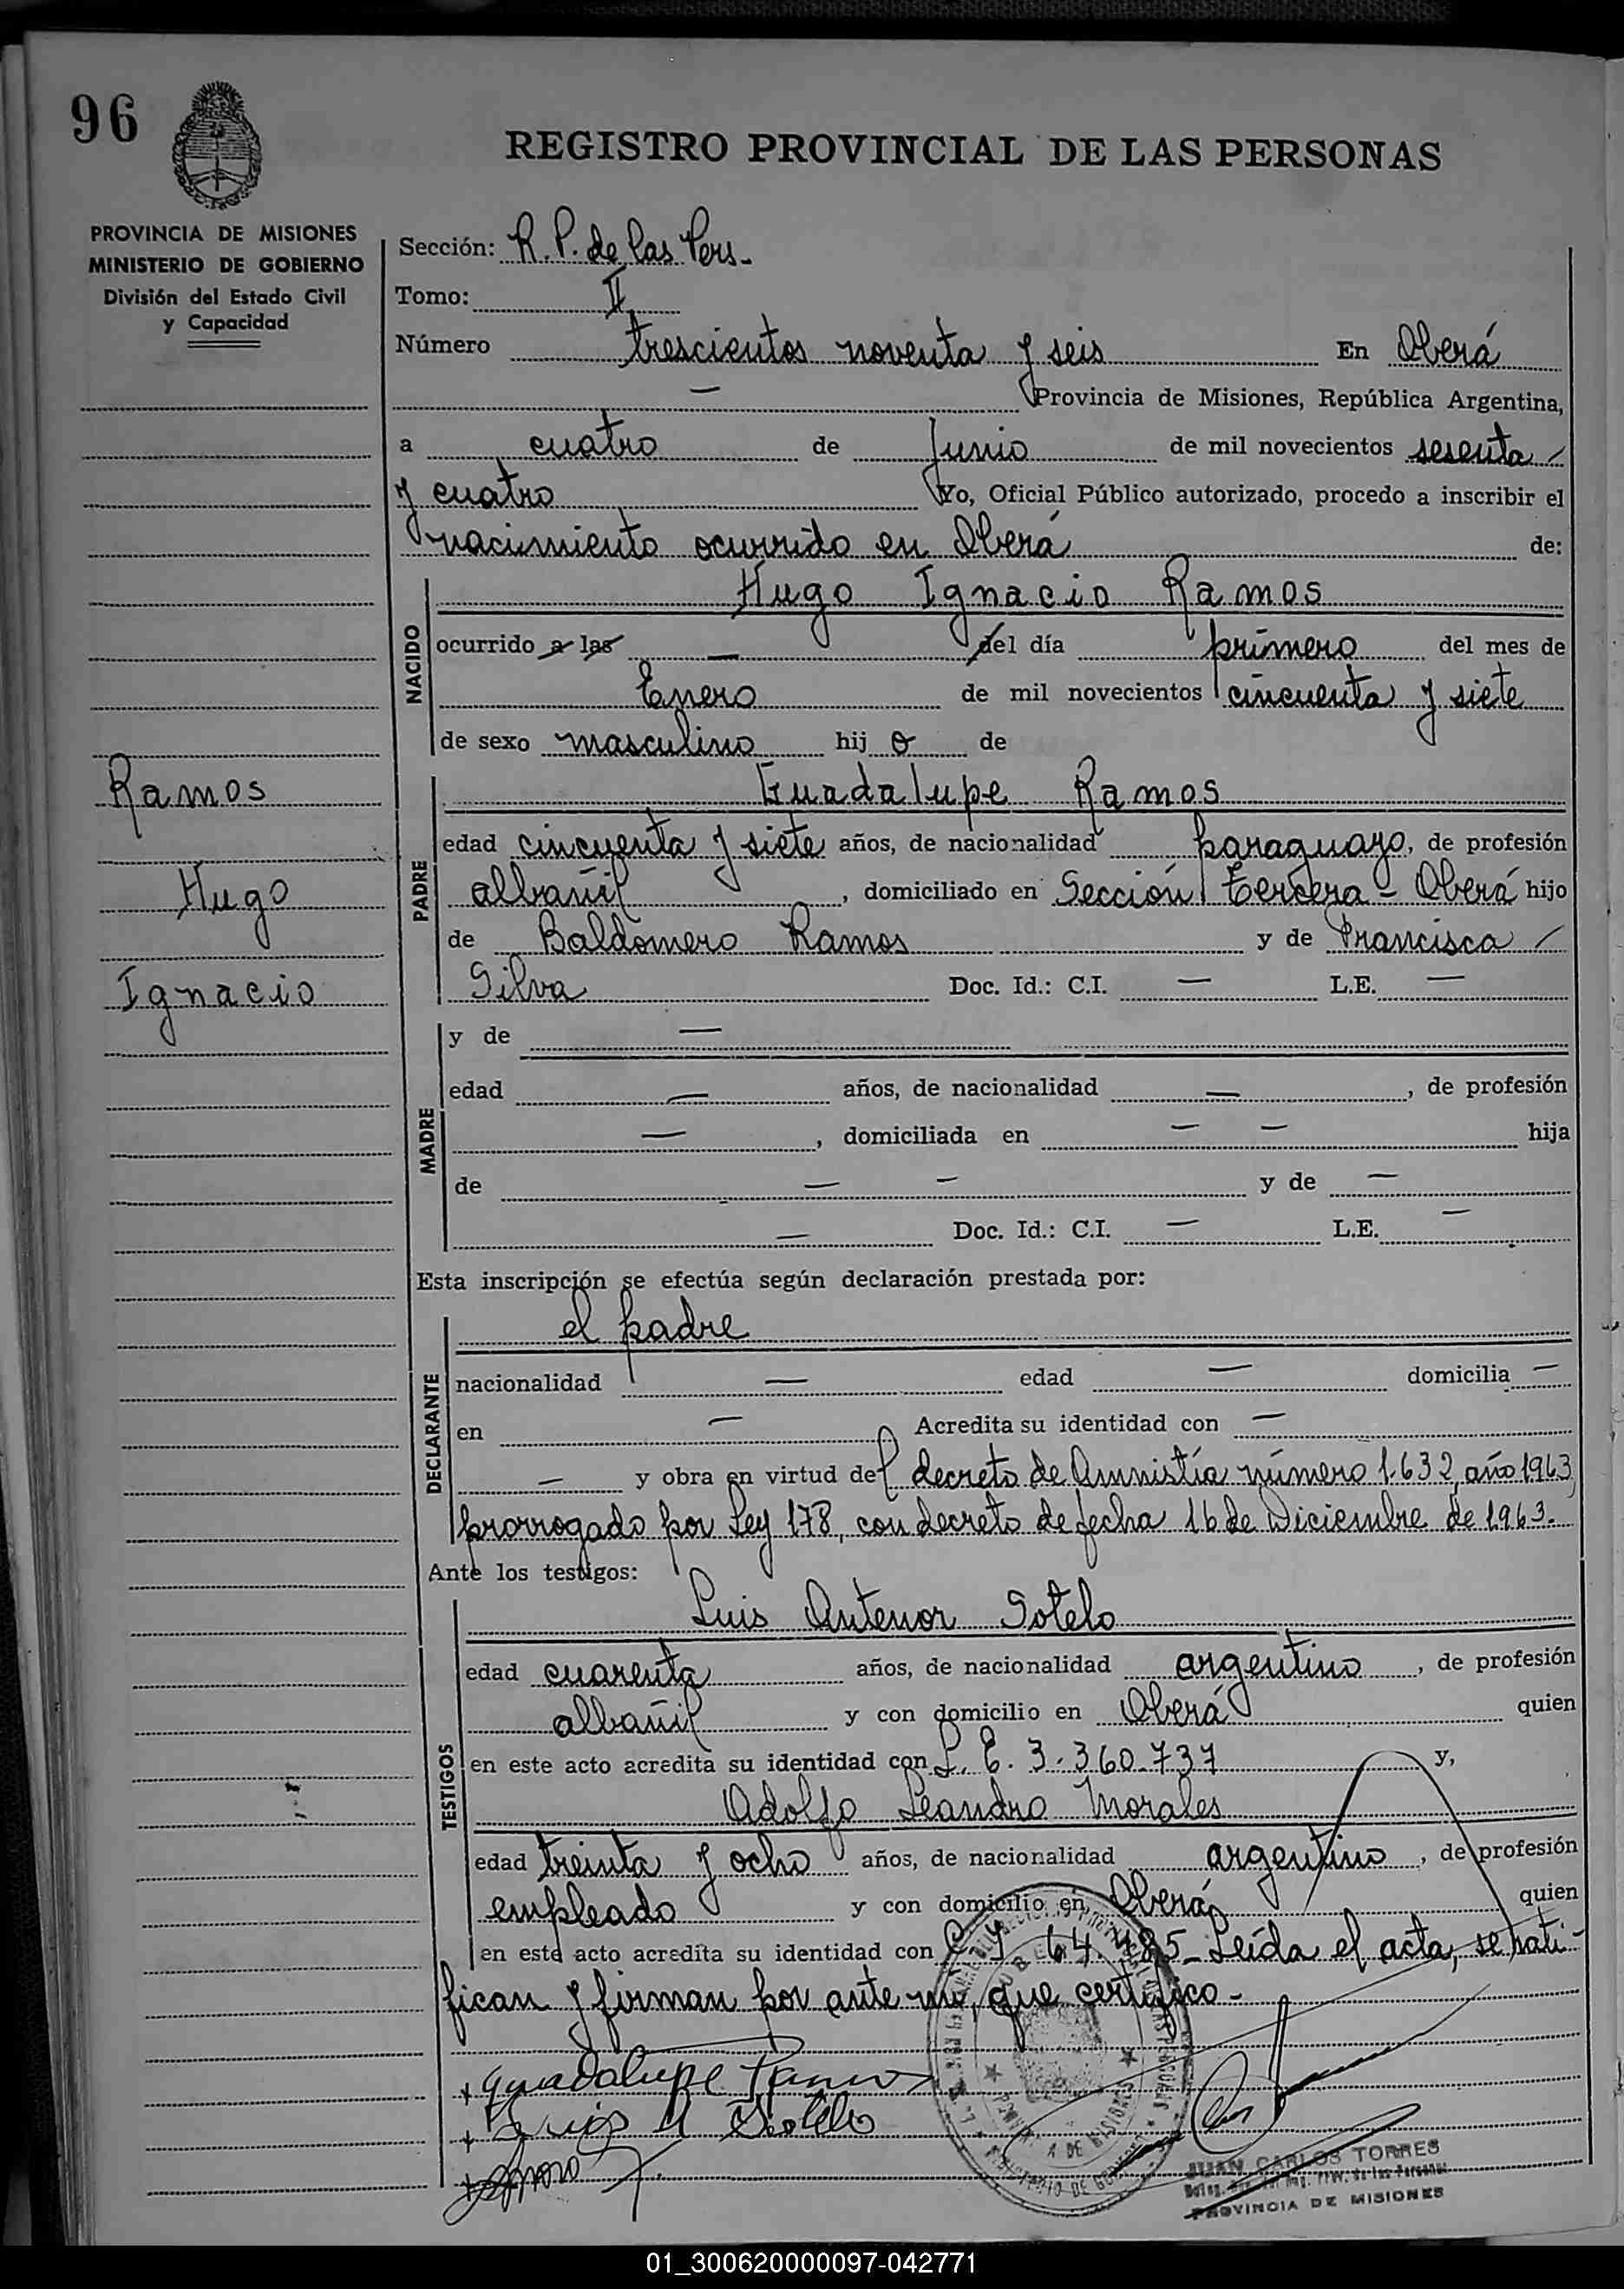 96
REGISTRO PROVINCIAL DE LAS PERSONAS
PROVINCIA DE MISIONES
MINISTERIO DE GOBIERNO
División del Estado Civil
y Capacidad
Ramos
Hugo
Ignacio
Sección: R. P. de las Pers.
Tomo: II
Número trescientos noventa y seis En Oberá
— Provincia de Misiones, República Argentina,
a cuatro de Junio de mil novecientos sesenta
y cuatro Yo, Oficial Público autorizado, procedo a inscribir el
nacimiento ocurrido en Oberá de:
NACIDO
Hugo Ignacio Ramos
ocurrido a las — del día primero del mes de
Enero de mil novecientos cincuenta y siete
de sexo masculino hijo de
PADRE
Guadalupe Ramos
edad cincuenta y siete años, de nacionalidad paraguayo, de profesión
albañil, domiciliado en Sección Tercera - Oberá hijo
de Baldomero Ramos y de Francisca
Silva Doc. Id.: C.I. — L.E. —
MADRE
y de —
edad — años, de nacionalidad —, de profesión
—, domiciliada en — — hija
de — — y de —
— Doc. Id.: C.I. — L.E. —
Esta inscripción se efectúa según declaración prestada por:
DECLARANTE
el padre
nacionalidad — edad — domicilia —
en — Acredita su identidad con —
— y obra en virtud del decreto de Amnistía número 1.632, año 1963,
prorrogado por Ley 178, con decreto de fecha 16 de Diciembre de 1963.
Ante los testigos:
TESTIGOS
Luis Antenor Sotelo
edad cuarenta años, de nacionalidad argentino, de profesión
albañil y con domicilio en Oberá quien
en este acto acredita su identidad con L. E. 3.360.737 y,
Adolfo Leandro Morales
edad treinta y ocho años, de nacionalidad argentino, de profesión
empleado y con domicilio en Oberá quien
en este acto acredita su identidad con C. I. 64.485 - Leída el acta, se rati-
fican y firman por ante mí, que certifico -
Guadalupe Ramos
Luis A Sotelo
JUAN CARLOS TORRES
PROVINCIA DE MISIONES
01_300620000097-042771